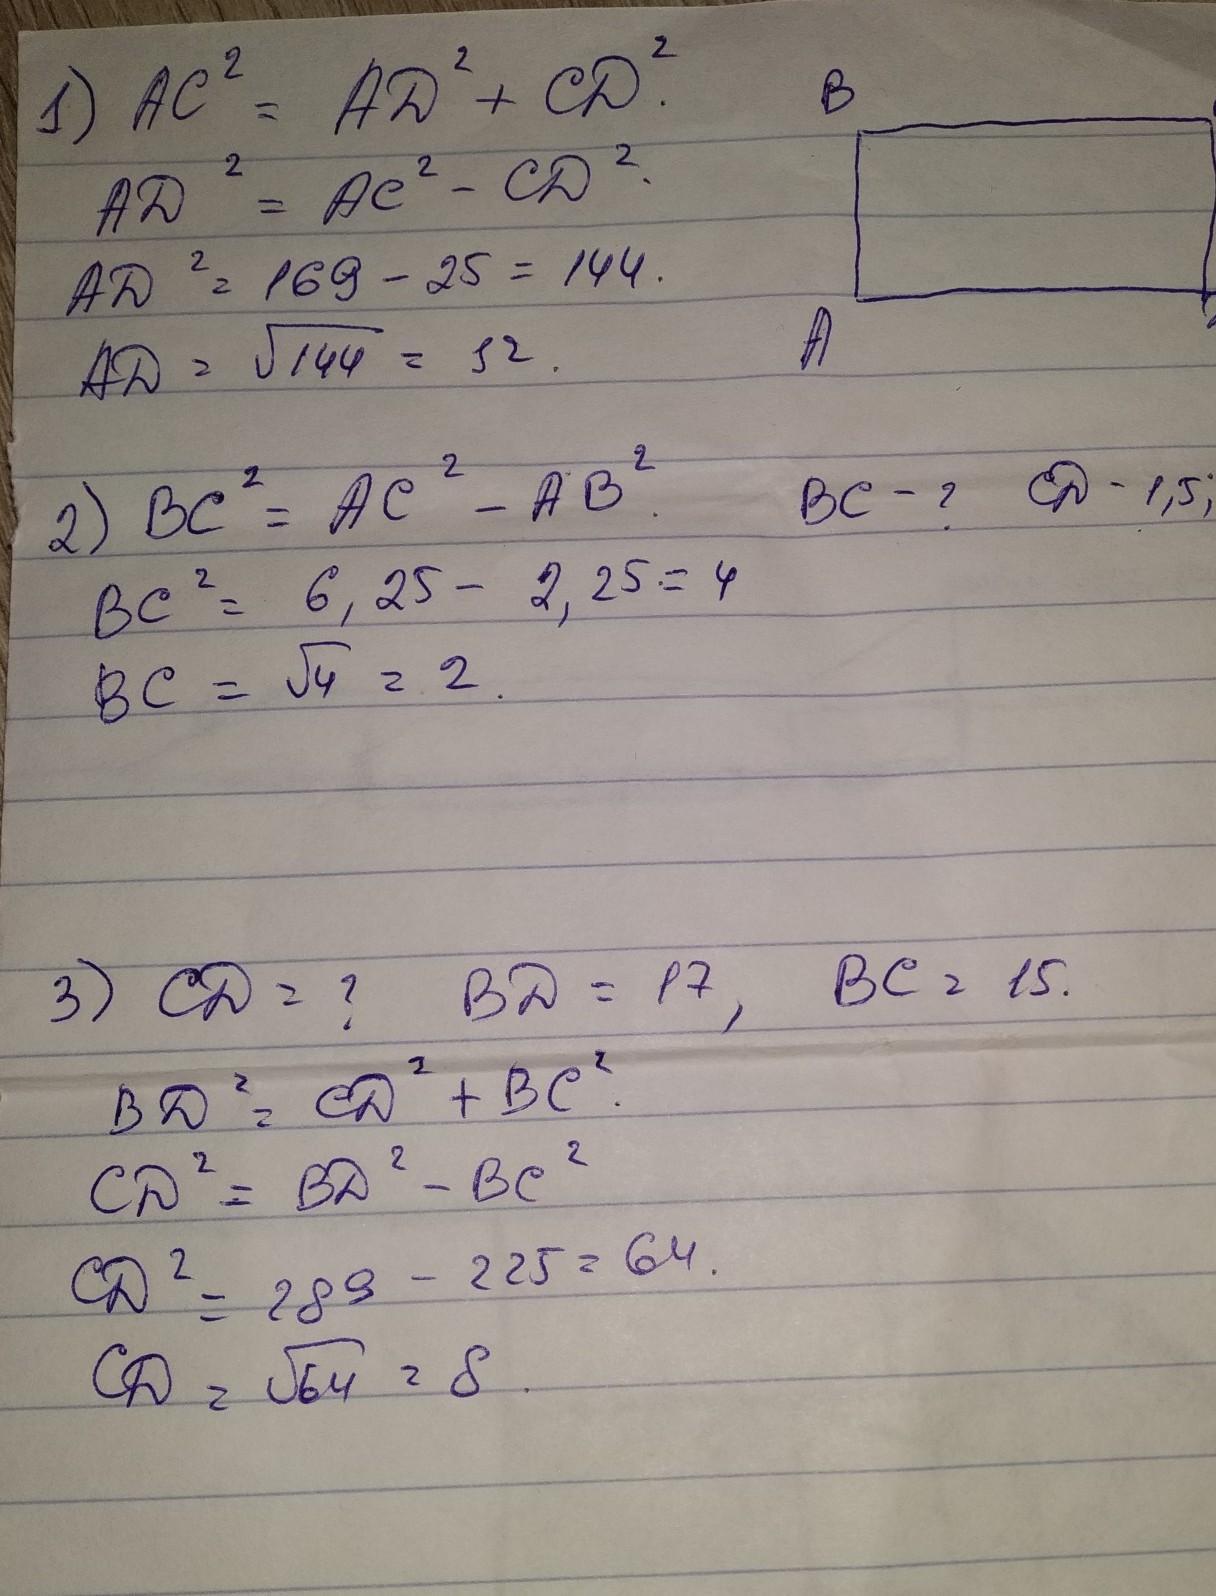 1) AC² = AD² + CD².
B
AD² = AC² - CD².
AD² = 169 - 25 = 144.
A
AD = √144 = 12.
2) BC² = AC² - AB².
BC - ? CD - 1,5;
BC² = 6,25 - 2,25 = 4
BC = √4 = 2.
3) CD = ? BD = 17, BC = 15.
BD² = CD² + BC².
CD² = BD² - BC²
CD² = 289 - 225 = 64.
CD = √64 = 8.